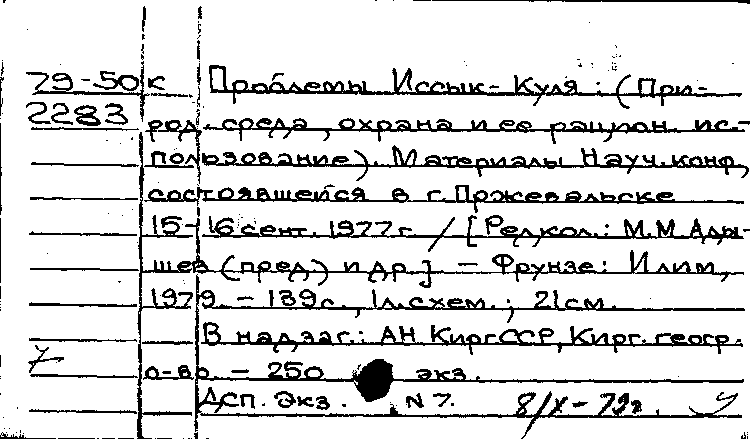 79-50к Проблемы Иссык-Куля: (При-
2283 род. среда, охрана и ее рацион. ис-
пользование). Материалы Науч. конф,
состоявшейся в г. Пржевальске
15-16 сент. 1977 г. / [Редкол.: М.М Ады-
шев (пред.) и др.] - Фрунзе: Илим,
1979. - 139с., 1л.схем.; 21см.
В надзаг.: АН КиргССР, Кирг. геогр.
о-во. - 250 экз.
ДСП. Экз. N 7. 8/X-79г.